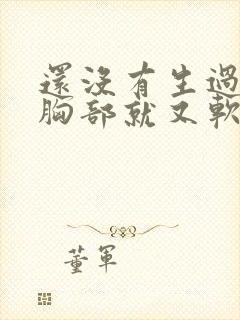 還沒有生過
胸部就又軟
董軍